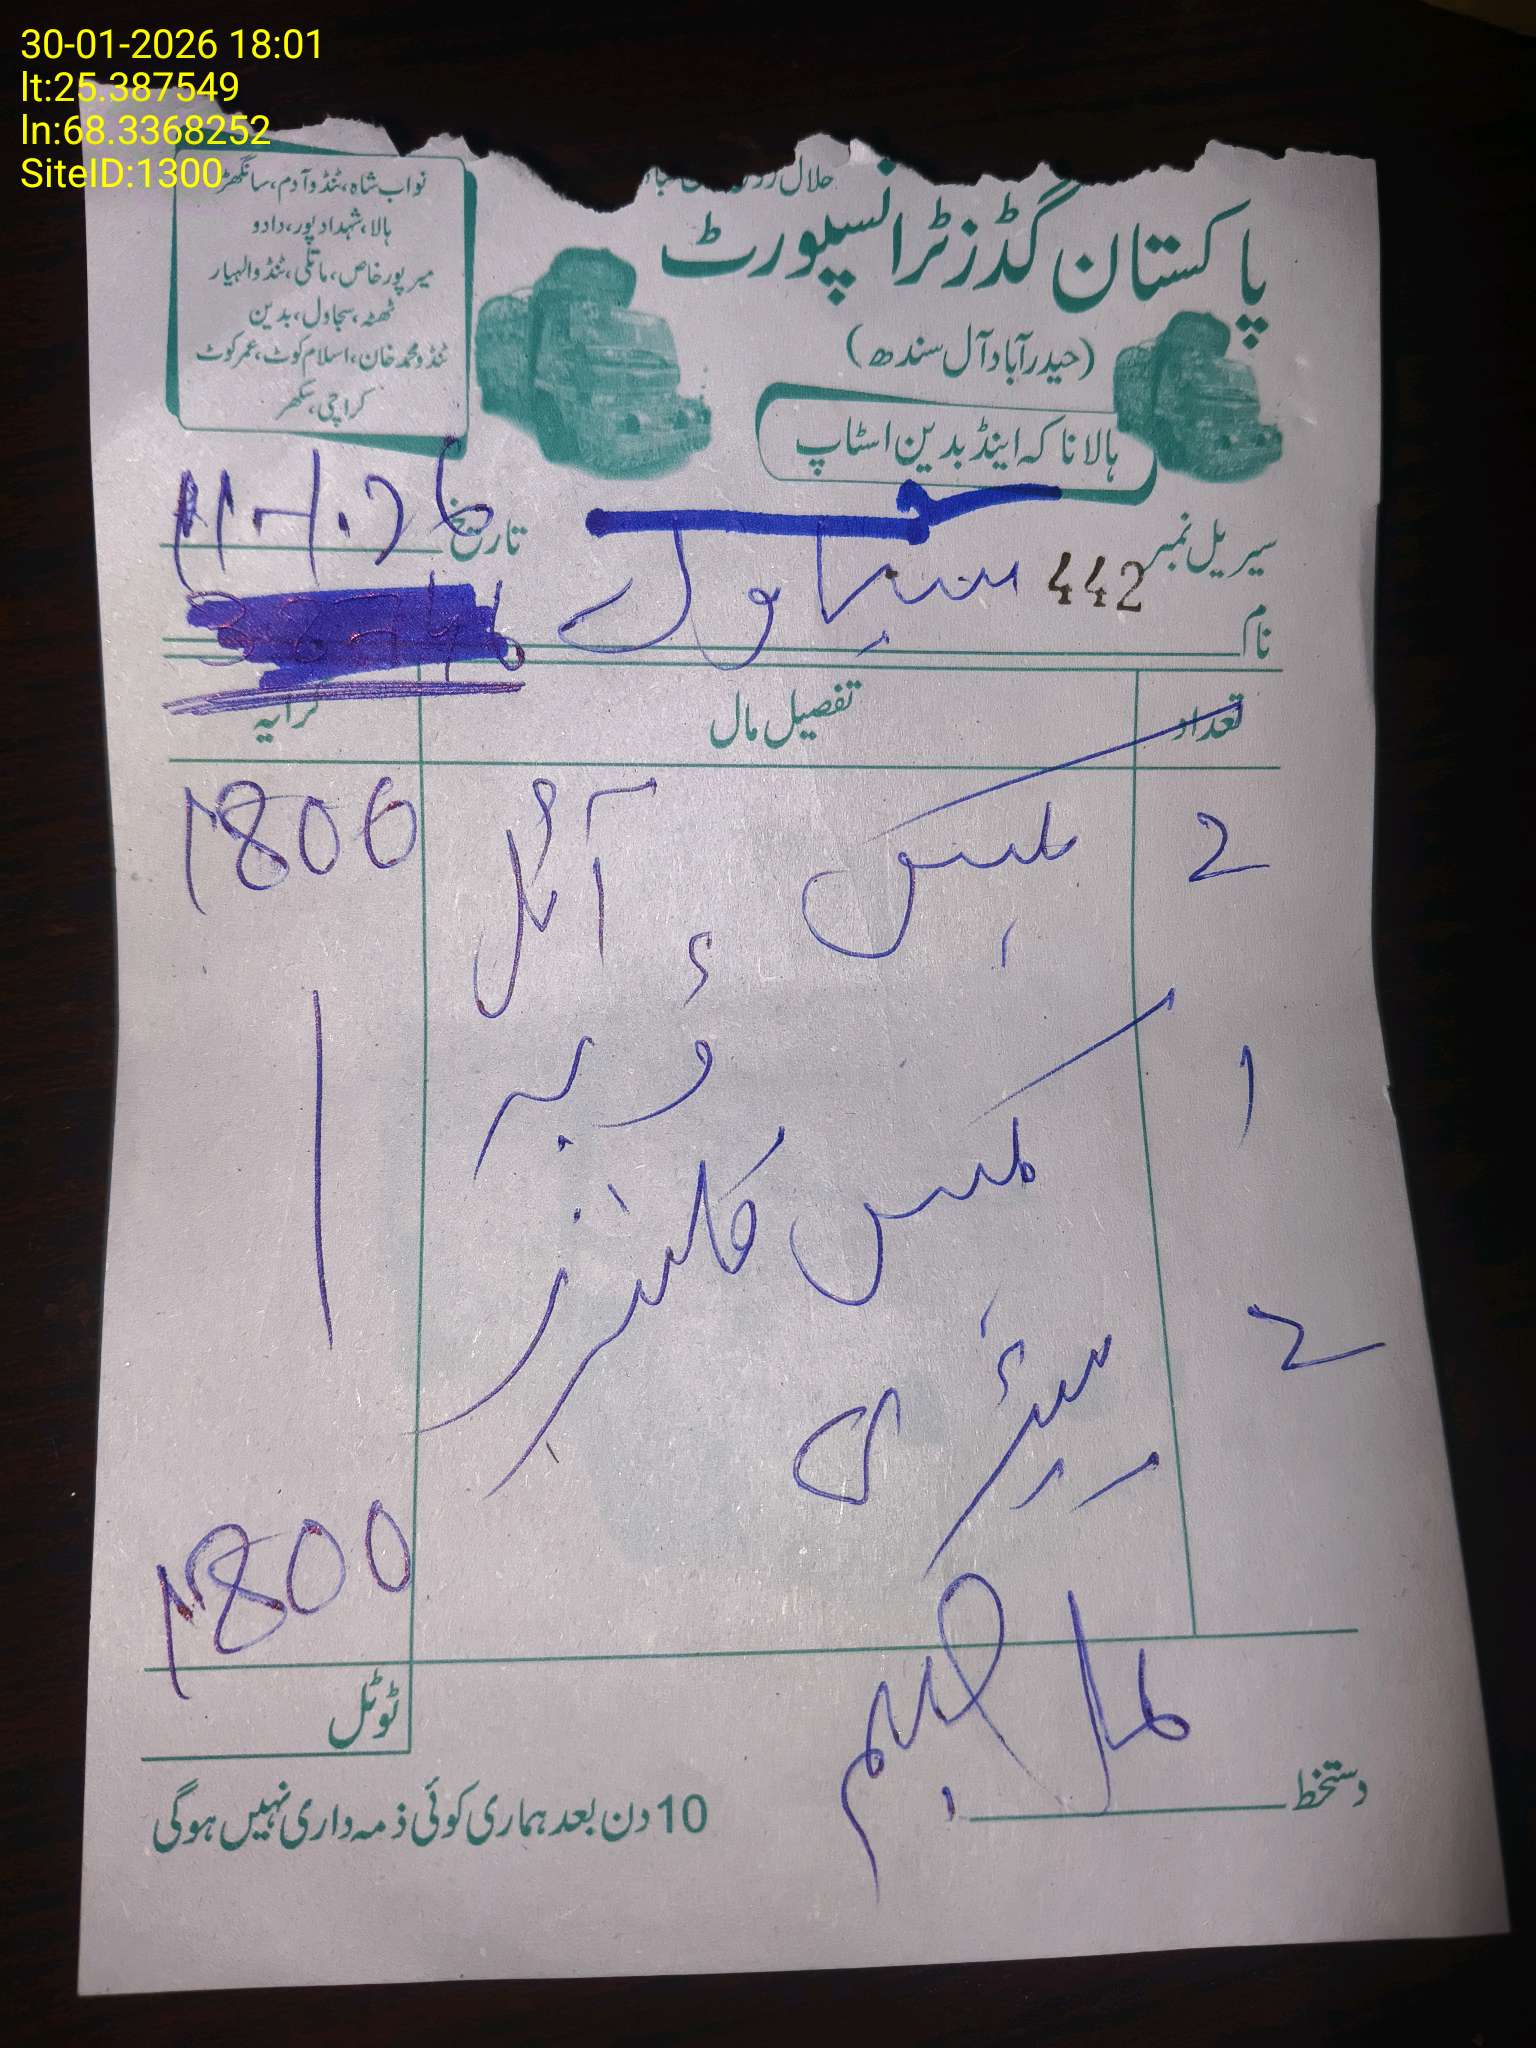 30-01-2026 18:01
lt:25.387549
ln:68.3368252
SiteID:1300
حلال
پاکستان گڈز ٹرانسپورٹ
(حیدرآباد آل سندھ)
ہالا ناکہ اینڈ بدین اسٹاپ
نواب شاہ، ٹنڈوآدم، سانگھڑ
ہالا، شہدادپور، دادو
میرپورخاص، ماتلی، ٹنڈوالہیار
ٹھٹہ، سجاول، بدین
ٹنڈومحمدخان، اسلام کوٹ، عمرکوٹ
کراچی، سکھر
سیریل نمبر 442 تاریخ
نام سجاول
تعداد تفصیل مال کرایہ
2 آئل 1800
ڈبہ
1 بکس کلینزر
2
1800
ٹوٹل
دستخط
10 دن بعد ہماری کوئی ذمہ داری نہیں ہوگی